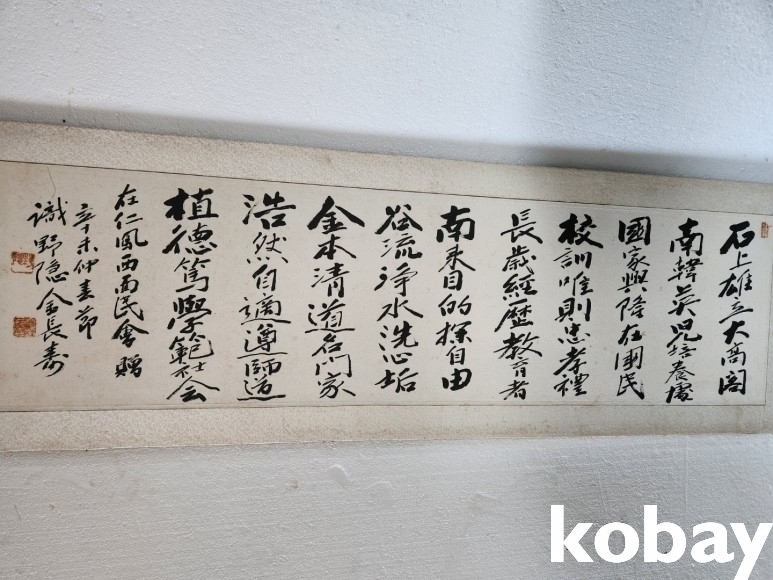 石上雄立大高閣
南韓英児培養處
國家興隆在國民
校訓唯則忠孝禮
長歲經歷教育者
南来目的探自由
谷流淨水洗心垢
金本清道名門家
浩然自適遵師道
植德篤學範社会
在仁風西面民會贈
辛未仲春節
識野隐金長壽
kobay